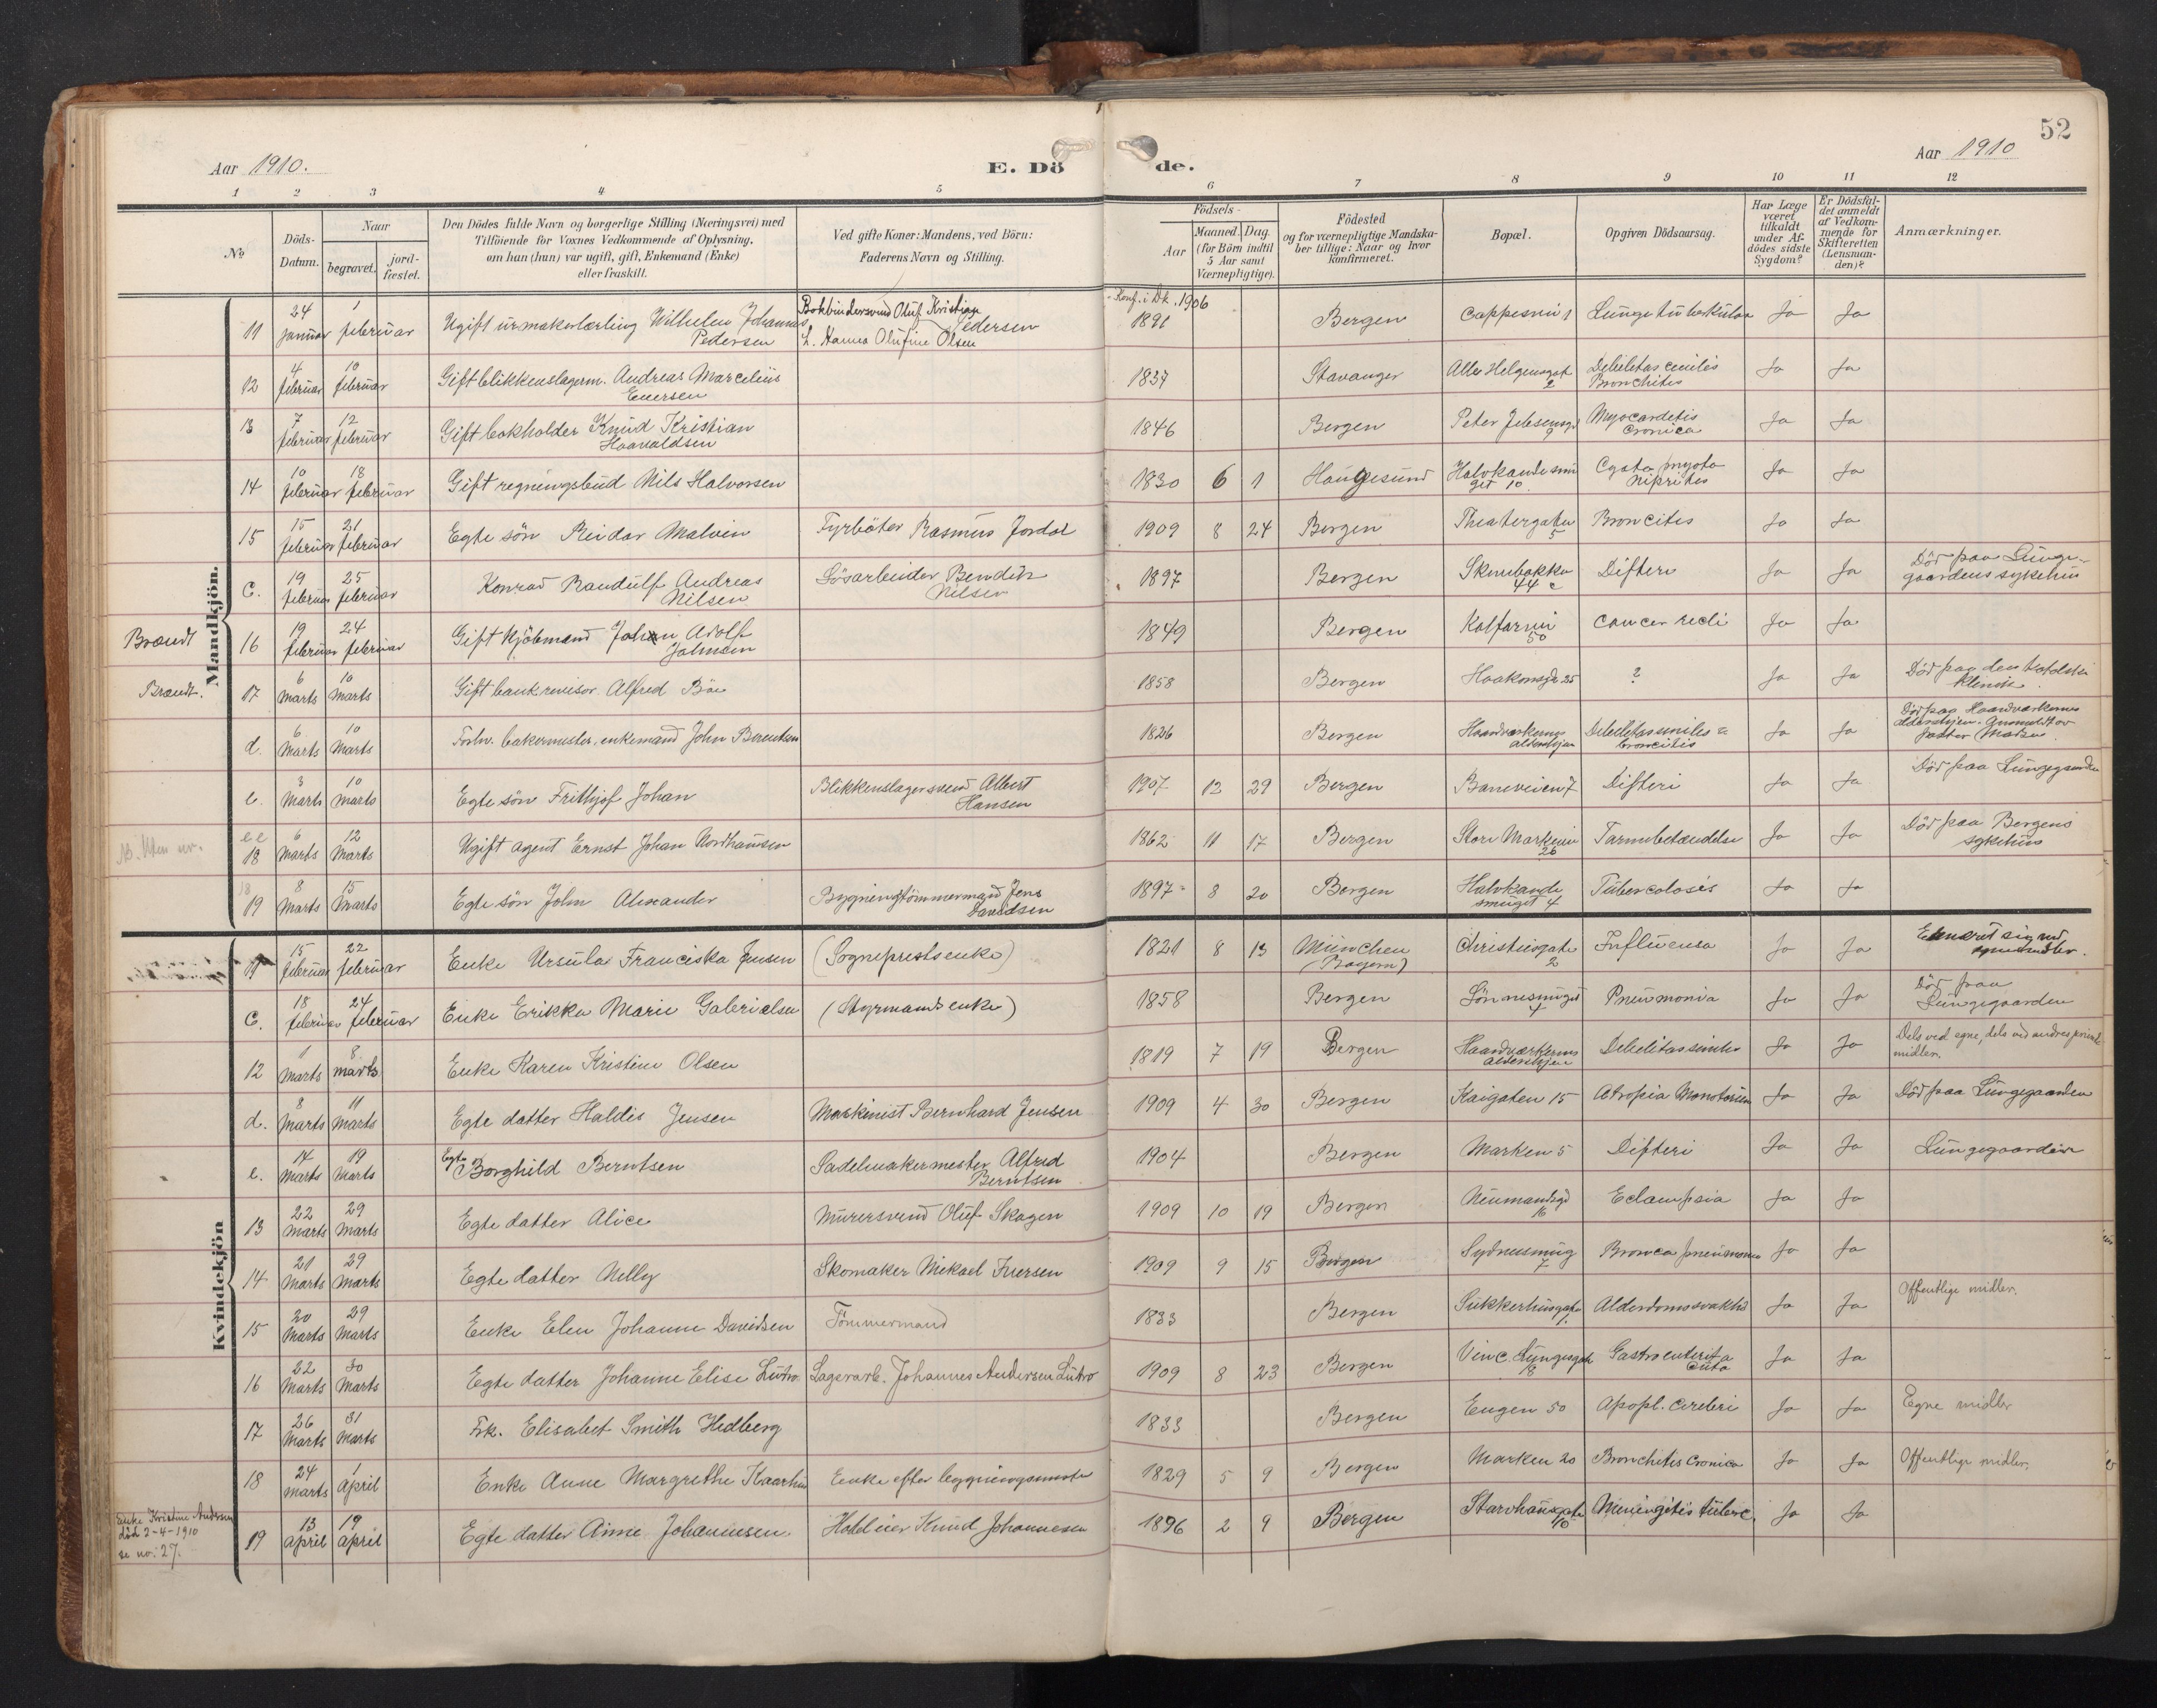 52
Aar 1910.
E. Dö de.
Aar 1910
1 2 3 4 5 6 7 8 9 10 11 12
No
Döds-Datum.
Naar
begravet.
jord-fæstet.
Den Dödes fulde Navn og borgerlige Stilling (Næringsvei) med
Tilföiende for Voxnes Vedkommende af Oplysning,
om han (hun) var ugift, gift, Enkemand (Enke)
eller fraskilt.
Ved gifte Koner: Mandens, ved Börn:
Faderens Navn og Stilling.
Födsels-
Aar
Maaned. Dag.
(for Börn indtil
5 Aar samt
Værnepligtige).
Födested
og for værnepligtige Mandska-
ber tillige: Naar og hvor
konfirmeret.
Bopæl.
Opgiven Dödsaarsag.
Har Læge
været
tilkaldt
under Af-
dödes sidste
Sygdom?
Er Dödsfal-
det anmeldt
af Vedkom-
mende for
Skifteretten
(Lensman-
den)?
Anmærkninger.
Mandkjön.
11 24 januar 1 februar Ugift urmakerlærling Wilhelm Johannes Pedersen Bokbindersvend Oluf Kristian Pedersen Hanna Olufine Olsen Konf. i Dk. 1906 1891 Bergen Cappesmu 1 Lungetuberkulose Ja Ja
12 4 februar 10 februar Gift blikkenslagerm. Andreas Marcelius Enersen 1837 Stavanger Alle Helgensgt 2 Debilitas cenilis Bronchitis Ja Ja
13 7 februar 12 februar Gift bokholder Knud Kristian Haavaldsen 1846 Bergen Peter Jebsensgt 9 Myocarditis Cronica Ja Ja
14 10 februar 18 februar Gift regningsbud Nils Halvorsen 1830 6 1 Haugesund Halvkandesmuget 10 Ja Ja
15 15 februar 21 februar Egte sön Reidar Malvin Fyrböter Rasmus Jordal 1909 8 24 Bergen Theatergaten 5 Broncitis Ja Ja
C. 19 februar 25 februar Konrad Randulf Andreas Nilsen Lösarbeider Bendik Nilsen 1897 Bergen 44 c Difteri Ja Ja Död paa Lungegaardens sykehus
Brandt 16 19 februar 24 februar Gift kjöbmand Johan Adolf Johnsen 1849 Bergen Kalfarvei 50 Cancer recti Ja Ja
Brandt. 17 6 Marts 10 Marts Gift bankrevisor Alfred Böe 1858 Bergen Haakonsgt 25 ? Ja Ja Död paa den klinik.
d. 6 Marts 10 Marts Forhv. bakermester, enkemand John Berentsen 1826 Bergen Haandverkernes aldershjem Debilitas seniles & broncitis Ja Ja Död paa Haandværkernes aldershjem.
e. 3 Marts 10 Marts Egte sön Frithjof Johan Blikkenslagersvend Albert Hansen 1907 12 29 Bergen Baneveien 7 Difteri Ja Ja Död paa Lungegaarden
18 6 Marts 12 Marts Ugift agent Ernst Johan Nordhausen 1862 11 17 Bergen Store Markevei 26 Tarmbetændelse Ja Ja Död paa Bergens sykehus
19 8 Marts 15 Marts Egte sön John Alexander Bygningstömmermand Jens Davidsen 1897 8 20 Bergen Halvkandesmuget 4 Tuberculosis Ja Ja
Kvindekjön
11 15 februar 22 februar Enke Ursula Franciska Jensen (Sogneprestsenke) 1821 8 13 München (Bayern) Christiesgate 2 Influensa Ja Ja
C. 18 februar 24 februar Enke Erikke Marie Gabrielsen (Styrmands enke) 1858 Bergen 7 Pneumonia Ja Ja Död paa Lungegaarden
12 1 Marts 8 marts Enke Karen Kristine Olsen 1819 7 19 Bergen Haandværkernes aldershjem Debilitas senilis Ja Ja Dels ved egne, dels ved andres private midler.
d. 8 Marts 11 Marts Egte datter Haldis Jensen Maskinist Bernhard Jensen 1909 4 30 Bergen Kaigaten 15 Ja Ja Död paa Lungegaarden
e. 14 Marts 19 Marts Egte Borghild Berntsen Sadelmakermester Alfred Berntsen 1904 Bergen Marken 5 Difteri Ja Ja Lungegaarden
13 22 Marts 29 Marts Egte datter Alice Murersvend Oluf Skagen 1909 10 19 Bergen Neumandsgt 16 Eclampsia Ja Ja
14 21 Marts 29 Marts Egte datter Nelly Skomaker Mikael Iversen 1909 9 15 Bergen Sydnessmug 7 Ja Ja
15 20 Marts 29 Marts Enke Elen Johanne Davidsen Tömmermand 1833 Bergen Sukkerhusgate Alderdomssvakhed Ja Ja Offentlige midler.
16 22 Marts 30 Marts Egte datter Johanne Elise Lutro Lagerarb. Johannes Andersen Lutro 1909 8 23 Bergen Vinc. Lungesgate 8 Gastroenterit acuta Ja Ja
17 26 Marts 31 Marts Frk. Elisabet Smith Hedberg 1833 Bergen Engen 50 Apopl. cerebri Ja Ja Egne midler
18 24 marts 1 April Enke Anne Margrethe Kaarhus Enke efter 1829 5 9 Bergen Marken 20 Bronchitis Cronica Ja Ja Offentlige midler.
Enke Kristine Andersen
död 2-4-1910
se no. 27.
19 13 April 19 April Egte datter Aime Johannesen Hoteleier Knud Johannesen 1896 2 9 Bergen Starvhusgate 10 Meningitis tuberc. Ja Ja